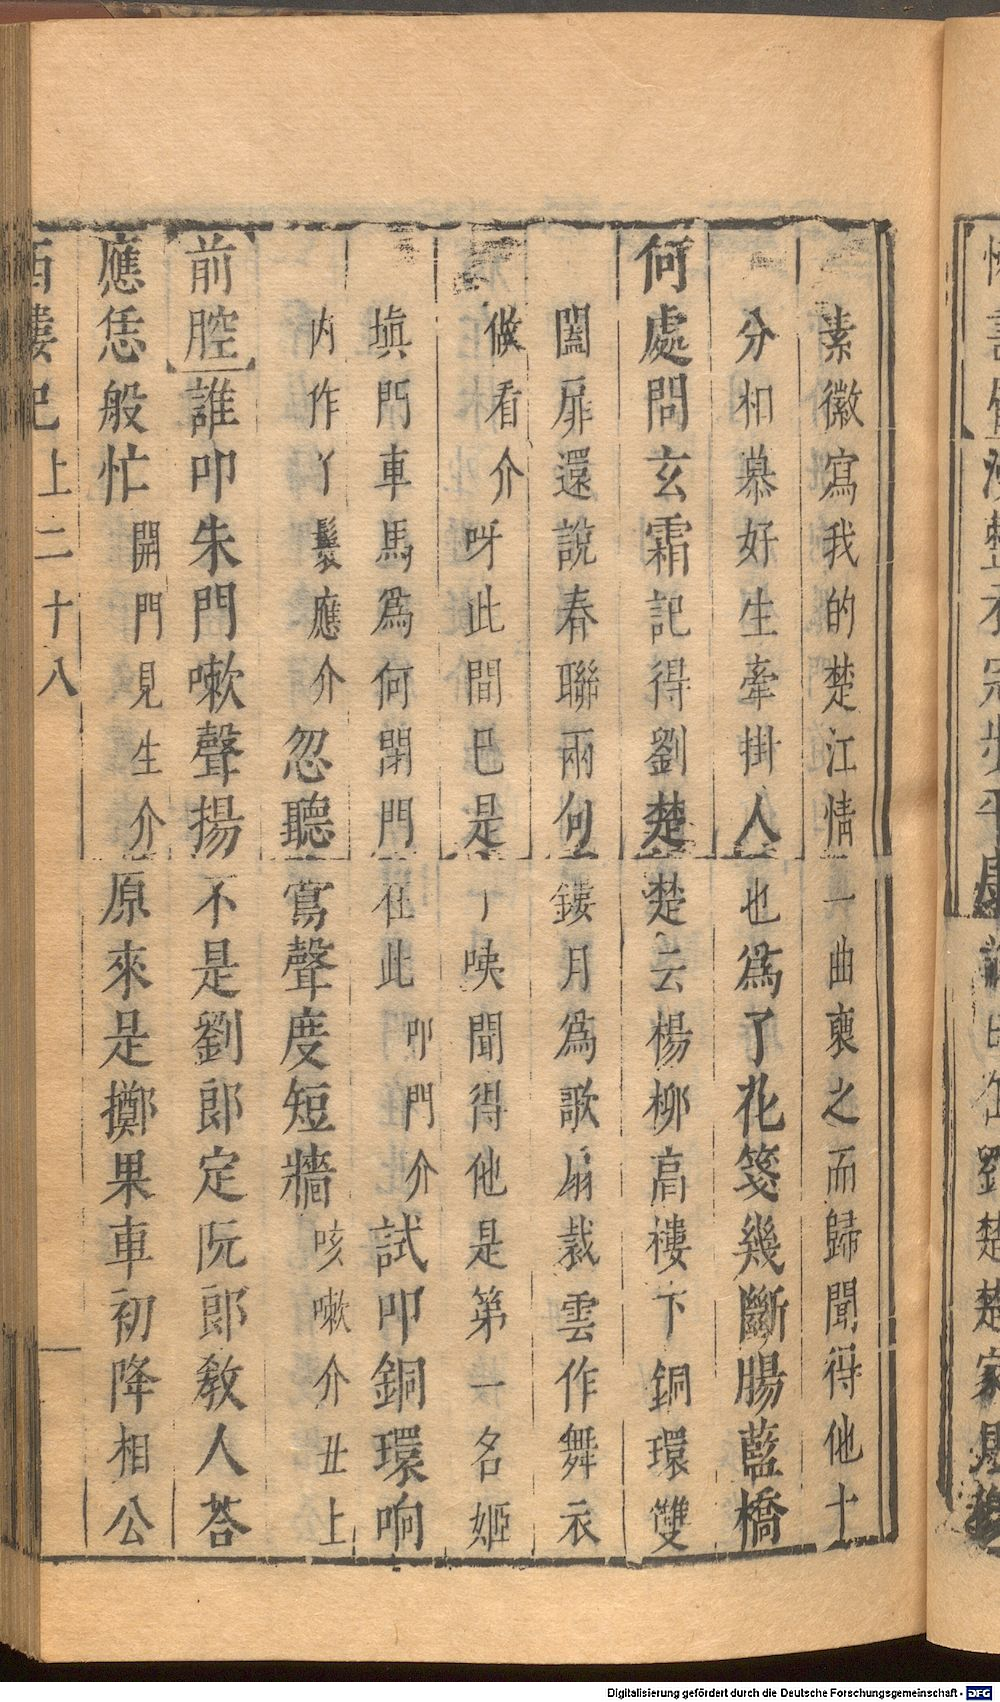 素徽寫我的楚江情一曲裏之而歸聞得他十
分相慕好生牽掛人也爲了花箋幾斷腸藍橋
何處問玄霜記得劉楚楚云楊柳高樓下銅環雙
闔扉還說春聯兩句鏤月爲歌扇裁雲作舞衣
做看介呀此間已是了咦聞得他是第一名姬
塡門車馬爲何閉門在此叩門介試叩銅環响
内作丫鬟應介忽聽鶯聲度短牆咳嗽介丑上
前腔誰叩朱門嗽聲揚不是劉郎定阮郎教人荅
應恁般忙開門見生介原來是擲果車初降相公
西樓記上二十八
Digitalisierung gefördert durch die Deutsche Forschungsgemeinschaft - DFG